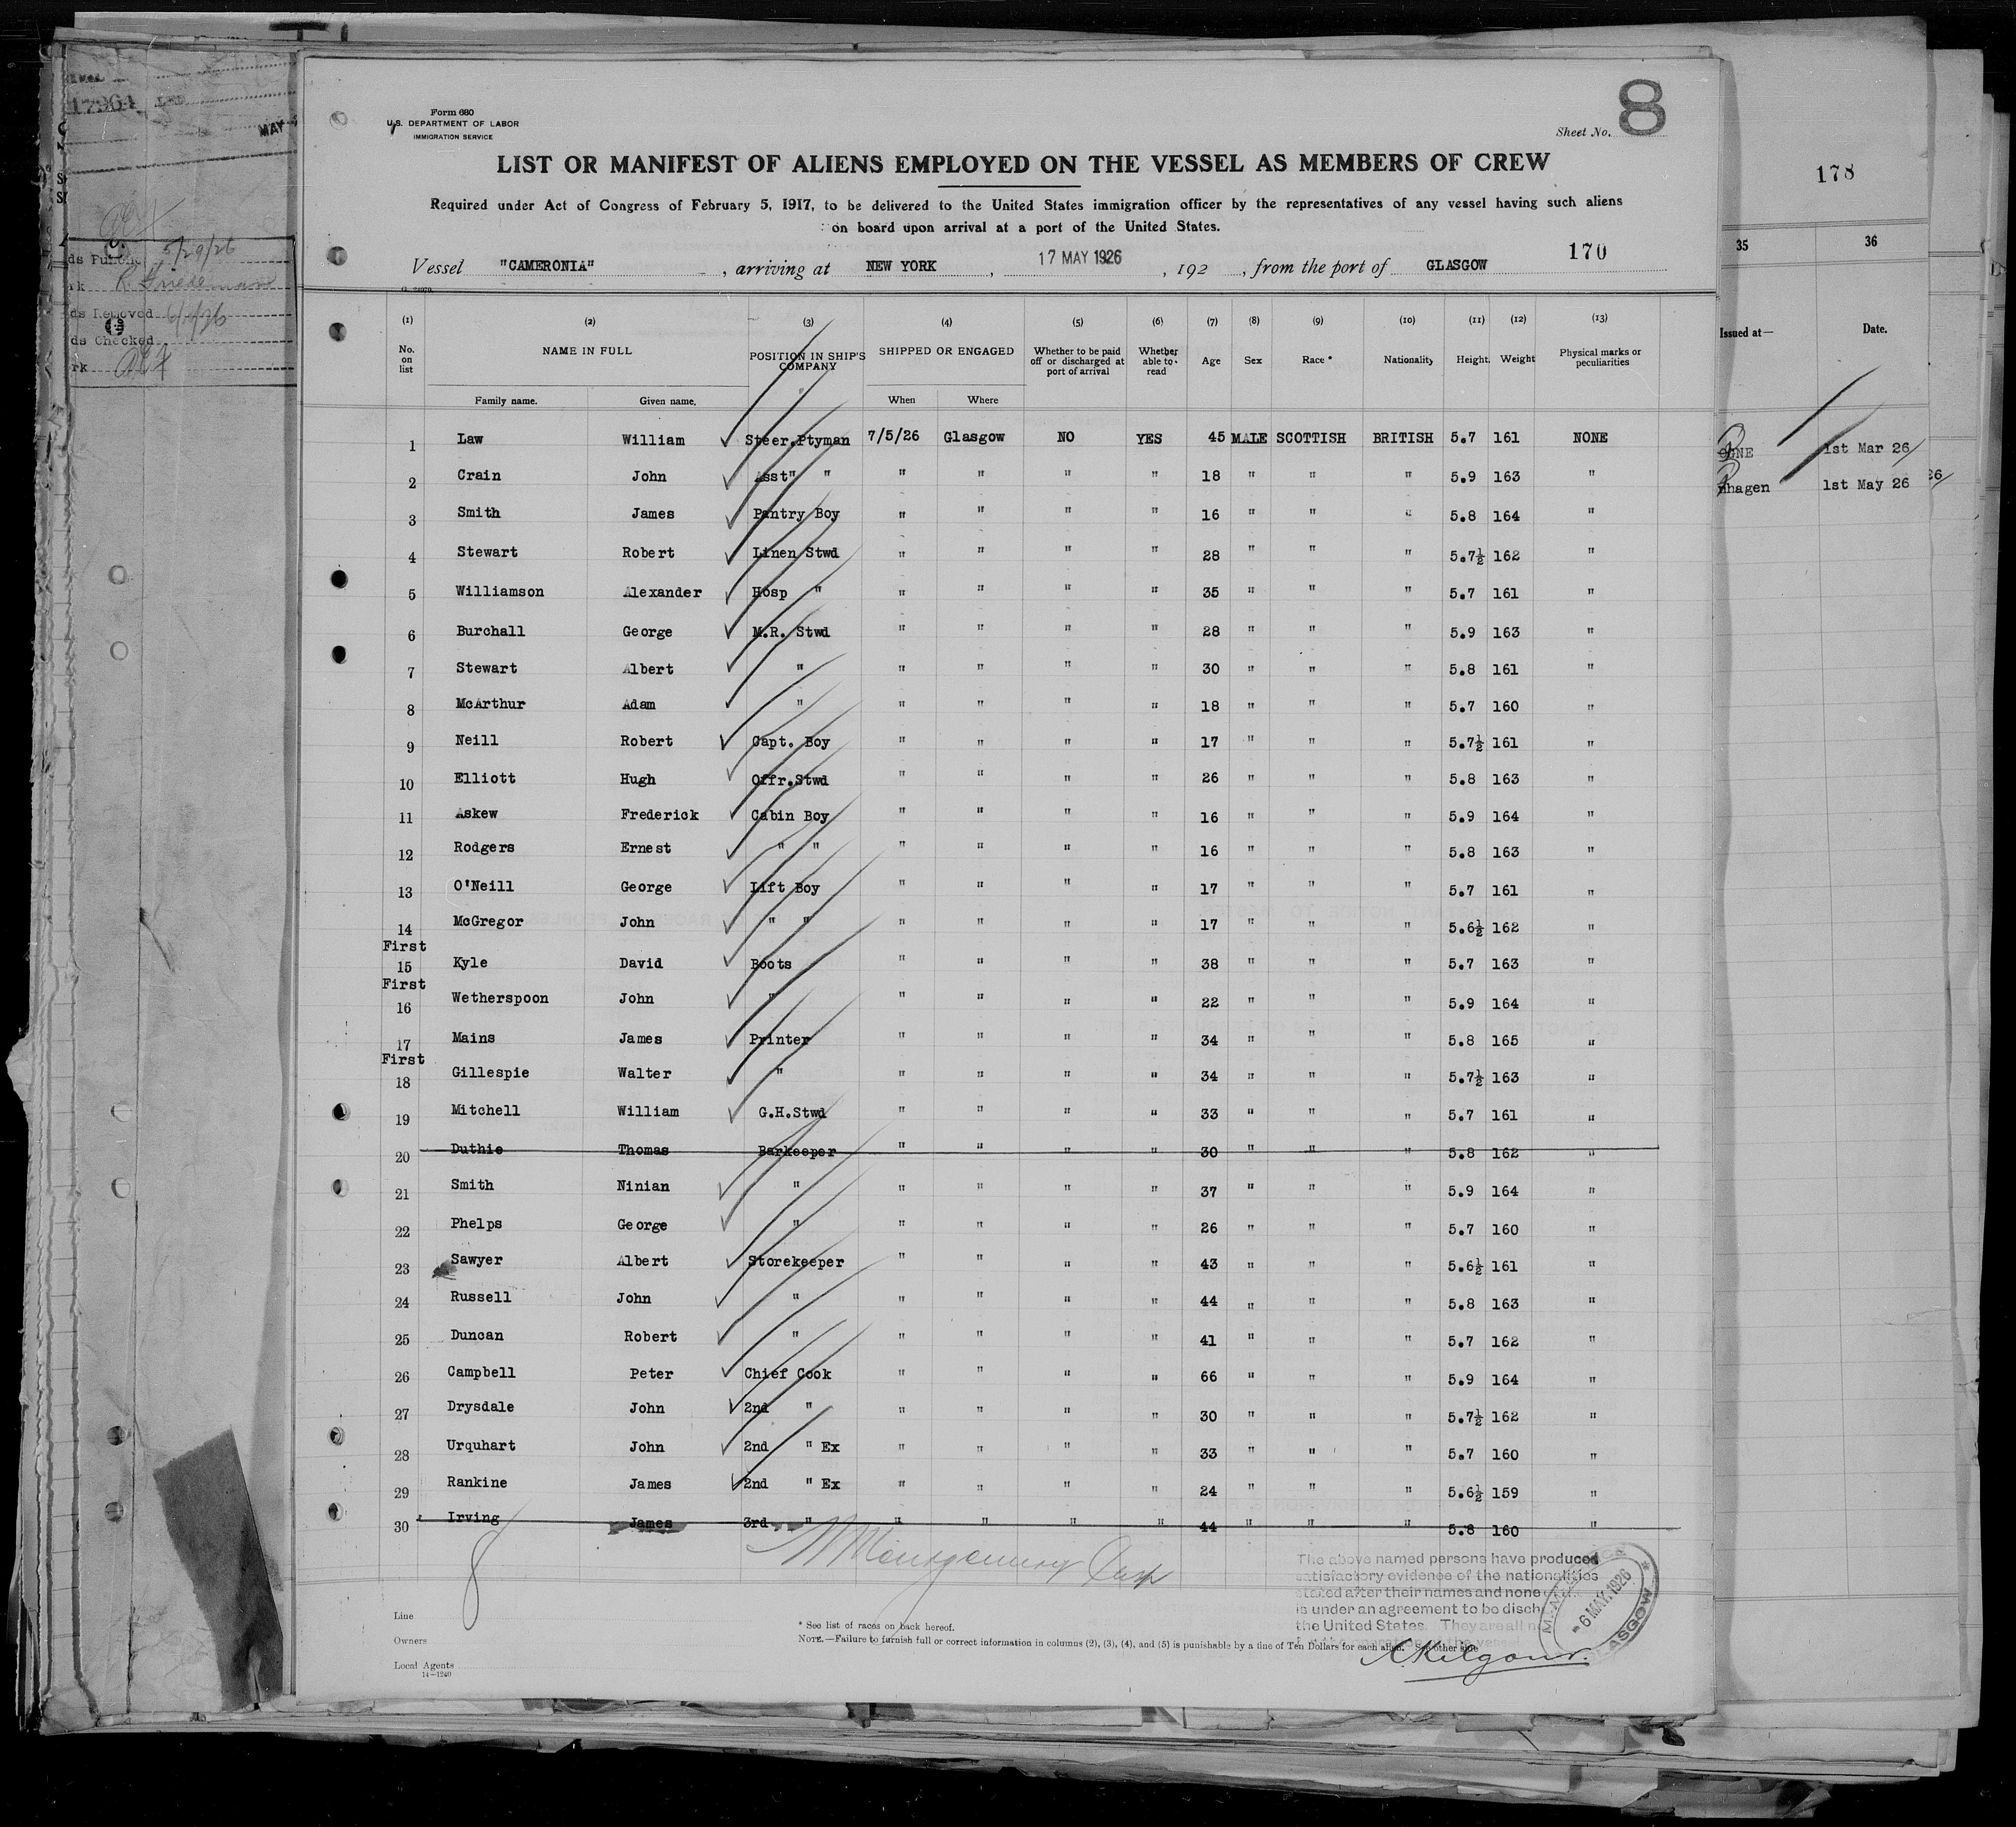 17964
MAY
5/29/26
ds Removed
ds Checked
rk
8
Form 680
U.S. DEPARTMENT OF LABOR
IMMIGRATION SERVICE
Sheet No. 8
LIST OR MANIFEST OF ALIENS EMPLOYED ON THE VESSEL AS MEMBERS OF CREW
Required under Act of Congress of February 5, 1917, to be delivered to the United States immigration officer by the representatives of any vessel having such aliens
on board upon arrival at a port of the United States.
Vessel "CAMERONIA", arriving at NEW YORK, 17 MAY 1926, 192 , from the port of GLASGOW 170
(1) (2) (3) (4) (5) (6) (7) (8) (9) (10) (11) (12) (13)
No. on list NAME IN FULL POSITION IN SHIP'S COMPANY SHIPPED OR ENGAGED Whether to be paid off or discharged at port of arrival Whether able to read Age Sex Race * Nationality Height Weight Physical marks or peculiarities
Family name. Given name. When Where
1 Law William Steer.Ptyman 7/5/26 Glasgow NO YES 45 MALE SCOTTISH BRITISH 5.7 161 NONE
2 Crain John Asst" " " " " " 18 " " " 5.9 163 "
3 Smith James Pantry Boy " " " " 16 " " " 5.8 164 "
4 Stewart Robert Linen Stwd " " " " 28 " " " 5.7½ 162 "
5 Williamson Alexander Hosp " " " " " 35 " " " 5.7 161 "
6 Burchall George M.R. Stwd " " " " 28 " " " 5.9 163 "
7 Stewart Albert " " " " " 30 " " " 5.8 161 "
8 McArthur Adam " " " " " 18 " " " 5.7 160 "
9 Neill Robert Capt. Boy " " " " 17 " " " 5.7½ 161 "
10 Elliott Hugh Offr.Stwd " " " " 26 " " " 5.8 163 "
11 Askew Frederick Cabin Boy " " " " 16 " " " 5.9 164 "
12 Rodgers Ernest " " " " " " 16 " " " 5.8 163 "
13 O'Neill George Lift Boy " " " " 17 " " " 5.7 161 "
14 McGregor John " " " " " " 17 " " " 5.6½ 162 "
First
15 Kyle David Boots " " " " 38 " " " 5.7 163 "
First
16 Wetherspoon John " " " " " 22 " " " 5.9 164 "
17 Mains James Printer " " " " 34 " " " 5.8 165 "
First
18 Gillespie Walter " " " " " 34 " " " 5.7½ 163 "
19 Mitchell William G.H.Stwd " " " " 33 " " " 5.7 161 "
20 Duthie Thomas Barkeeper " " " " 30 " " " 5.8 162 "
21 Smith Ninian " " " " " 37 " " " 5.9 164 "
22 Phelps George " " " " " 26 " " " 5.7 160 "
23 Sawyer Albert Storekeeper " " " " 43 " " " 5.6½ 161 "
24 Russell John " " " " " 44 " " " 5.8 163 "
25 Duncan Robert " " " " " 41 " " " 5.7 162 "
26 Campbell Peter Chief Cook " " " " 66 " " " 5.9 164 "
27 Drysdale John 2nd " " " " " 30 " " " 5.7½ 162 "
28 Urquhart John 2nd " Ex " " " " 33 " " " 5.7 160 "
29 Rankine James 2nd " Ex " " " " 24 " " " 5.6½ 159 "
30 Irving James 3rd " " " " " 44 " " " 5.8 160 "
8
Montgomery
The above named persons have produced
satisfactory evidence of the nationalities
stated after their names and none
is under an agreement to be disch
the United States. They are all
-6 MAY 1926
GLASGOW
Line
Owners
Local Agents
14—1240
* See list of races on back hereof.
NOTE.—Failure to furnish full or correct information in columns (2), (3), (4), and (5) is punishable by a fine of Ten Dollars for each alien. See other side
A Kilgour.
178
35 36
Issued at— Date.
1st Mar 26
hagen 1st May 26
26